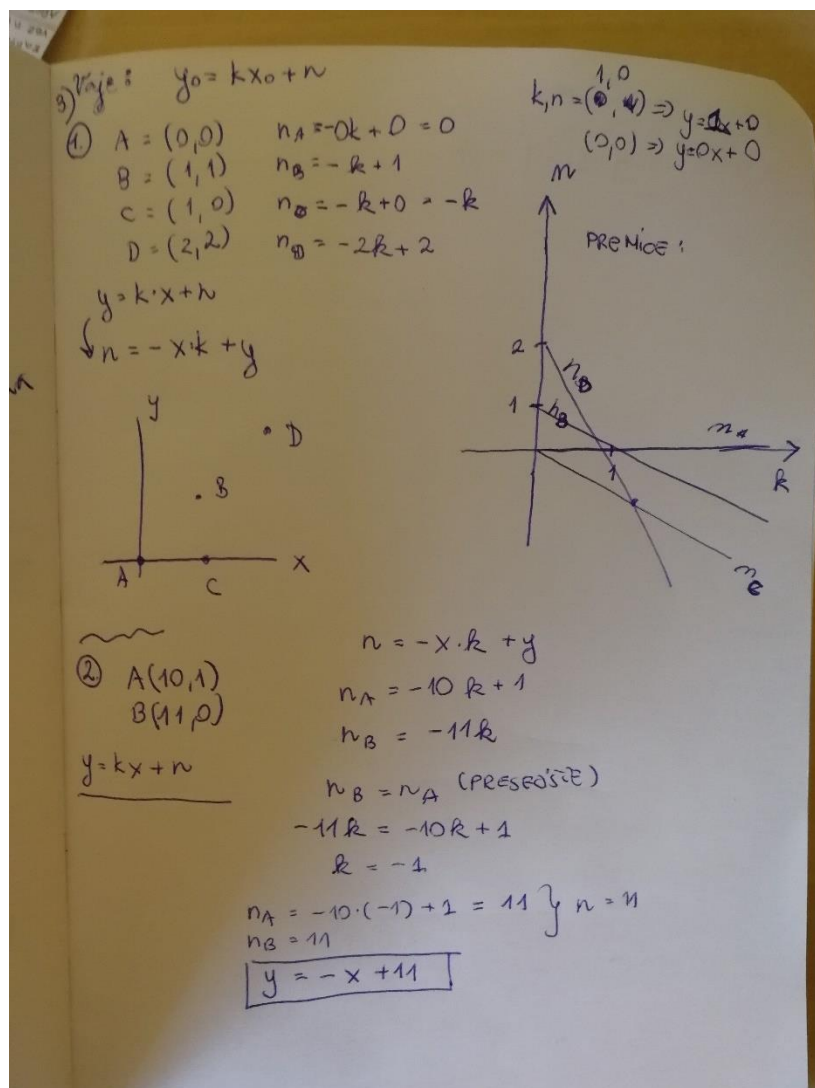 3) Vaje: y₀ = kx₀ + n
1,0
k,n = ( , ) => y=1x+0
(0,0) => y=0x+0
① A = (0,0) n_A = -0k + 0 = 0
B = (1,1) n_B = -k + 1
C = (1,0) n_C = -k+0 = -k
D = (2,2) n_D = -2k + 2
y = k·x+n
n = -x·k + y
y
D
B
A
C
x
n
PREMICE:
2
n_D
1
n_B
n_A
1
k
n_C
② A(10,1)
B(11,0)
y=kx+n
n = -x·k + y
n_A = -10k + 1
n_B = -11k
n_B = n_A (PRESEČIŠČE)
-11k = -10k + 1
k = -1
n_A = -10·(-1) + 1 = 11 } n = 11
n_B = 11
y = -x + 11